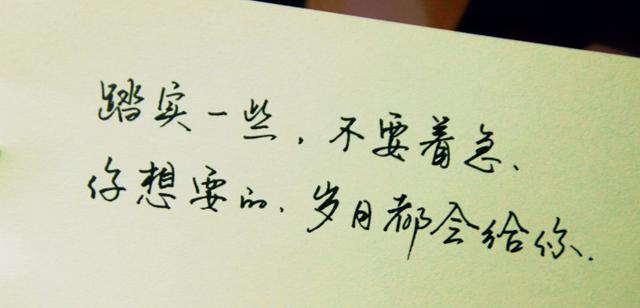 踏实一些,不要着急、
你想要的、岁月都会给你.